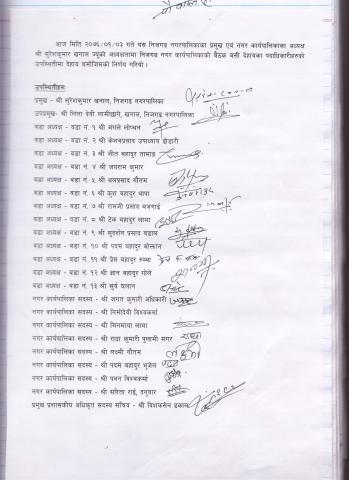 आज मिति २०७६/०९/०३ गते यस निजगढ नगरपालिकाका प्रमुख एवं नगर कार्यपालिकाका अध्यक्ष
श्री सुरेशकुमार खनाल ज्यूको अध्यक्षतामा निजगढ नगर कार्यपालिकाको बैठक बसी देहायका पदाधिकारीहरुको
उपस्थितीमा देहाय बमोजिमको निर्णय गरियो ।
उपस्थितीहरुः
प्रमुख - श्री सुरेशकुमार खनाल, निजगढ नगरपालिका
उपप्रमुख- श्री लिला देवी लामीछाने, खनाल, निजगढ नगरपालिका
वडा अध्यक्ष - वडा नं. १ श्री मंगले लोप्चन
वडा अध्यक्ष - वडा नं. २ श्री केशवप्रसाद उपाध्याय होडारी
वडा अध्यक्ष - वडा नं. ३ श्री जीत बहादुर तामाङ
वडा अध्यक्ष - वडा नं. ४ श्री जयराम कुमार
वडा अध्यक्ष - वडा नं. ५ श्री थलप्रसाद गौतम
वडा अध्यक्ष - वडा नं. ६ श्री कुल बहादुर थापा
वडा अध्यक्ष - वडा नं. ७ श्री रामजी प्रसाद बजगाई
वडा अध्यक्ष - वडा नं. ८ श्री टेक बहादुर लामा
वडा अध्यक्ष - वडा नं. ९ श्री सुदर्शन प्रसाद दडाल
वडा अध्यक्ष - वडा नं. १० श्री पदम बहादुर बोस्तान
वडा अध्यक्ष - वडा नं. ११ श्री प्रेम बहादुर बम्बा
वडा अध्यक्ष - वडा नं. १२ श्री ज्ञान बहादुर गोले
वडा अध्यक्ष - वडा नं. १३ श्री सुर्य घलान
नगर कार्यपालिका सदस्य - श्री जगत कुमारी अधिकारी
नगर कार्यपालिका सदस्य - श्री निमादेवी विश्वकर्मा
नगर कार्यपालिका सदस्य - श्री मिनमाया लामा
नगर कार्यपालिका सदस्य - श्री राधा कुमारी पुलामी मगर
नगर कार्यपालिका सदस्य - श्री लक्ष्मी गौतम
नगर कार्यपालिका सदस्य - श्री पदम बहादुर भुजेल
नगर कार्यपालिका सदस्य - श्री पवन विश्वकर्मा
नगर कार्यपालिका सदस्य - श्री सरिता राई, दनुवार
प्रमुख प्रशासकीय अधिकृत सदस्य सचिव - श्री विशकसेन ढकाल